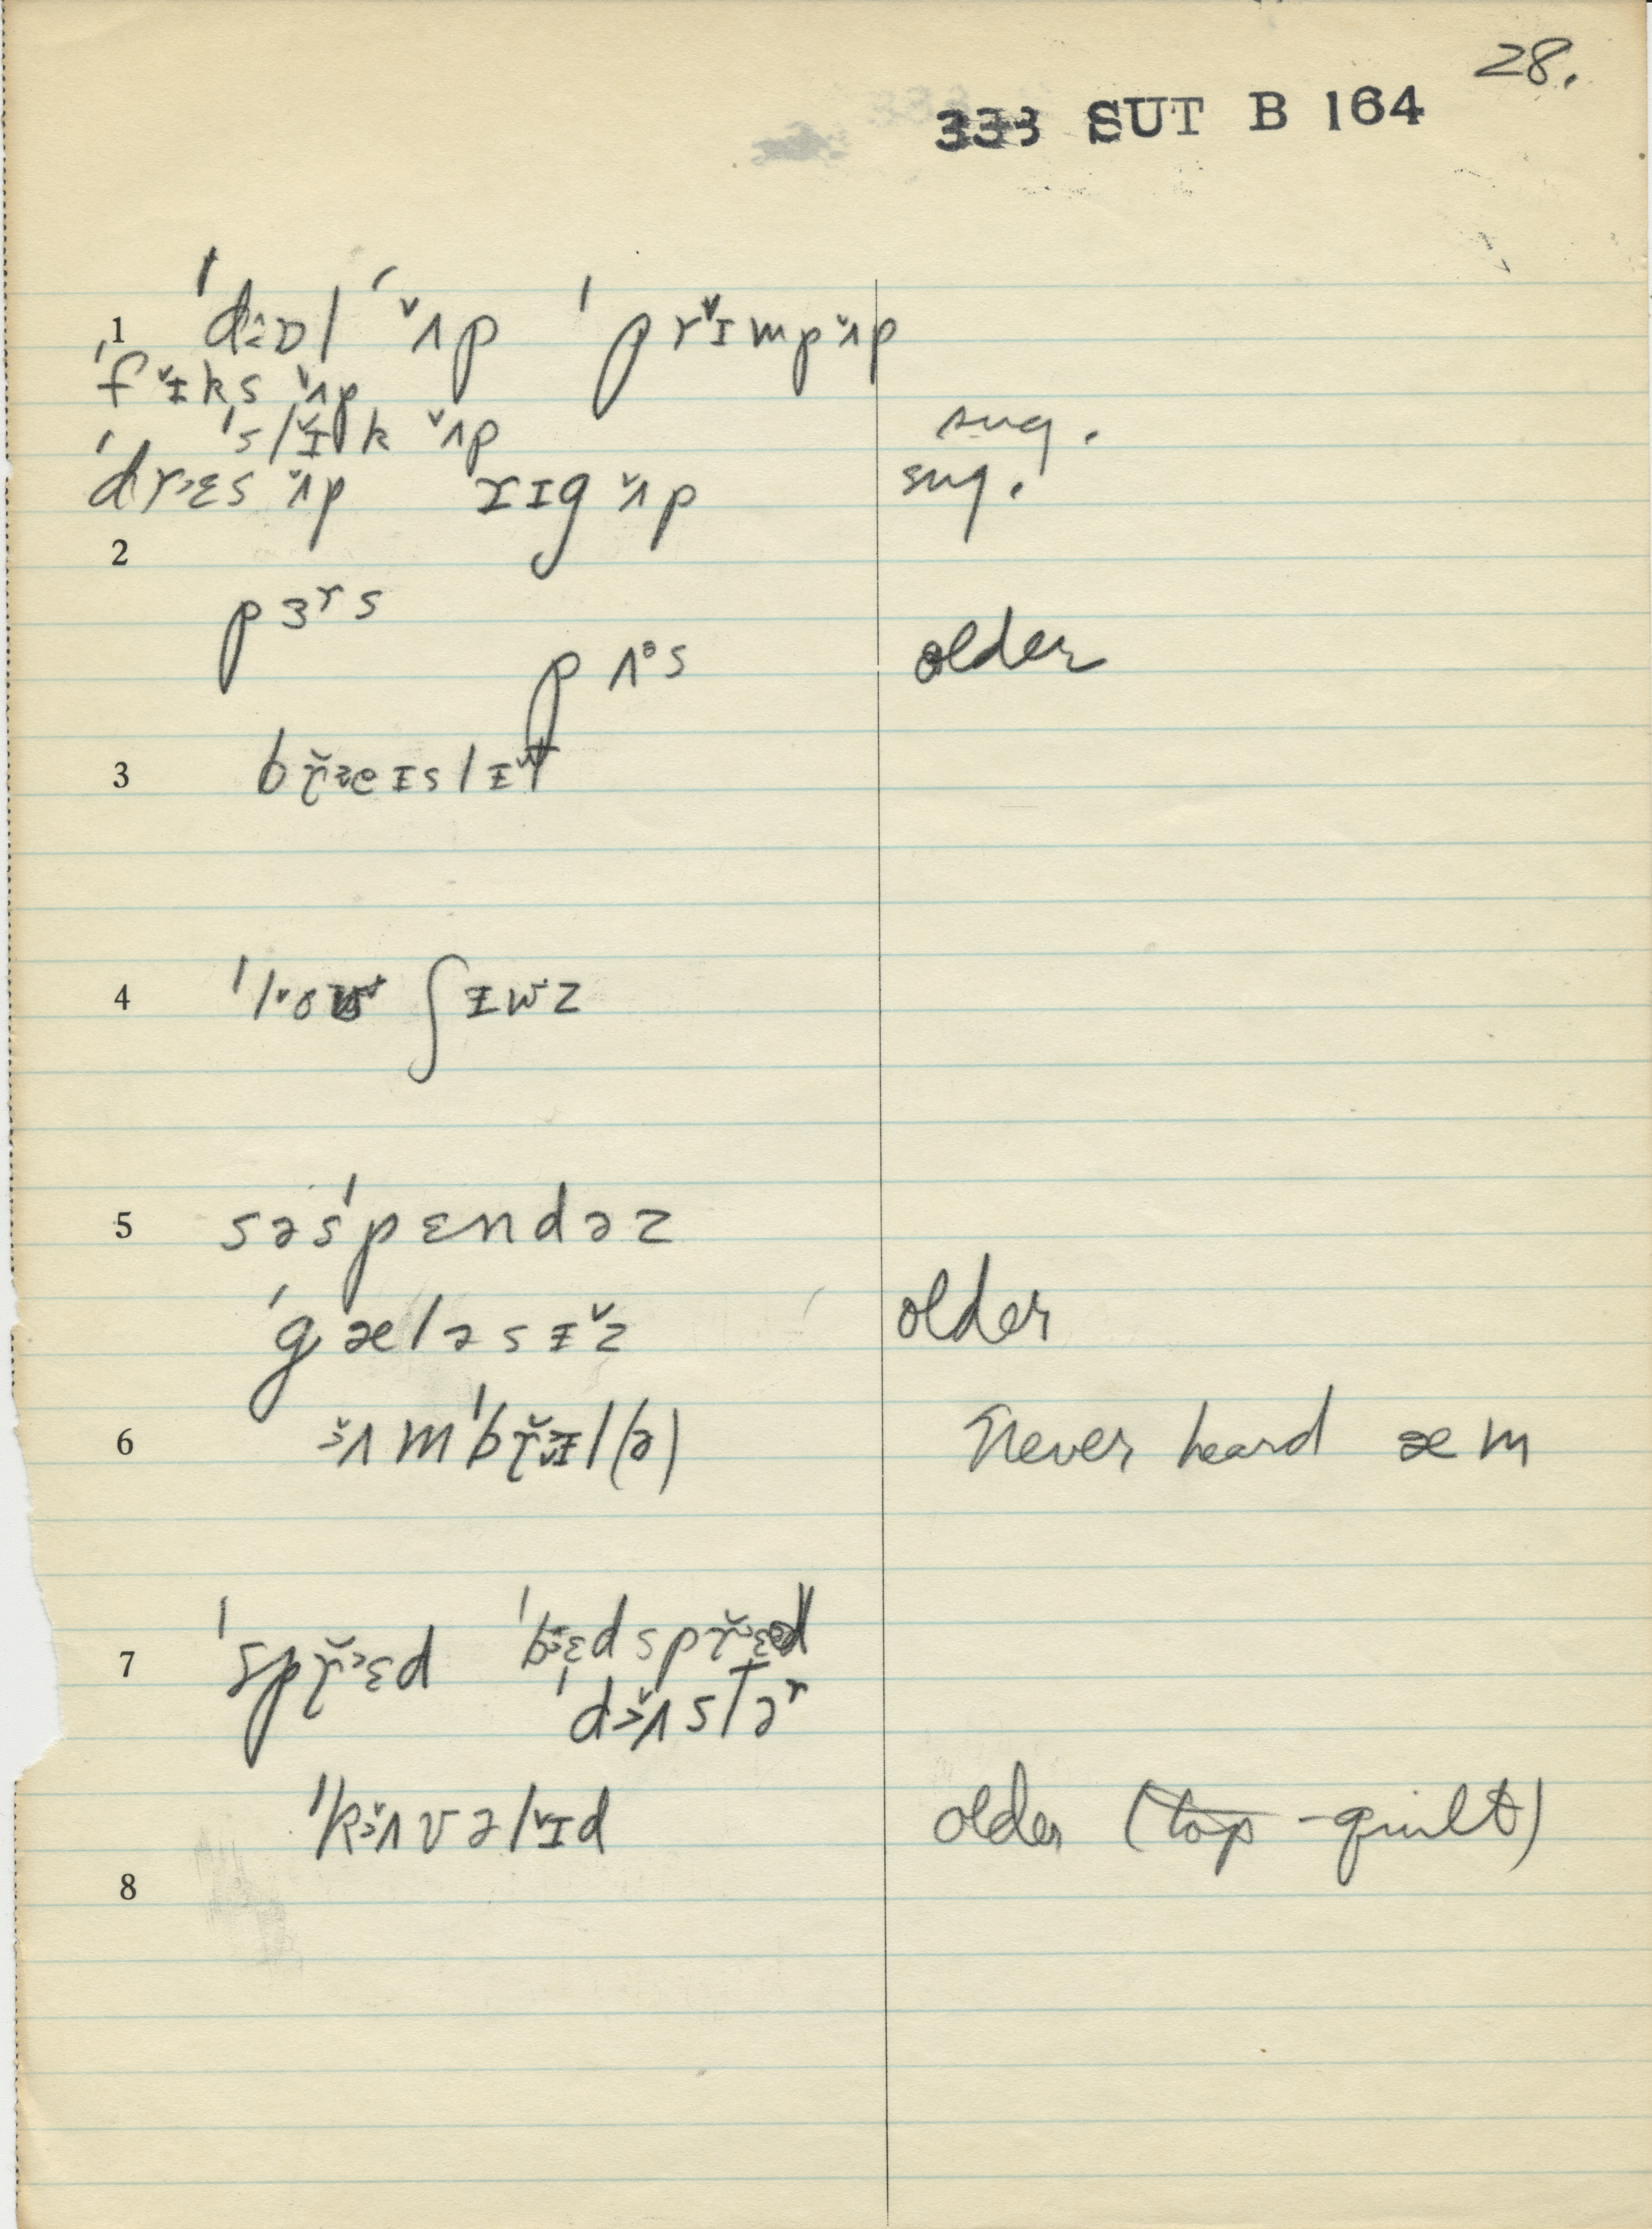 28.
333 SUT B 164
1 ˈdɒl ˈʌ̌p ˈprɪ̌mpʌ̌p
ˈfɪ̌ks ʌ̌p
ˈslɪ̌k ʌ̌p sug.
ˈdrɛs ʌ̌p rɪg ʌ̌p sug.
2
pɜʳs
pʌᶿs older
3 bř̜eɪslɨt
4 ˈloʊ ʃɨwz
5 səsˈpɛndəz
ˈgæləsɨ̌z older
6 ʌ̌mˈbrɛl(ə) Never heard æm
7 ˈsprɛd ˈbɛdsprɛd
ˈdʌ̌stəʳ
ˈkʌ̌vəlɪ̌d older (top-quilt)
8